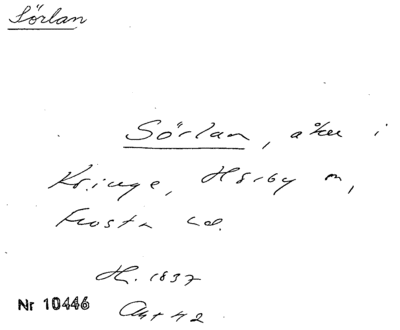 Sörlan
Sörlan, åker i
Kringe, Hörby sn,
Frosta hd.
H. 1837
Nr 10446 Akt 42